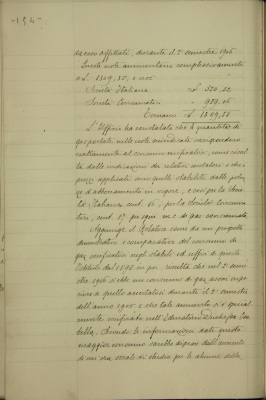 -154-
da essa affittati, durante il 2° semestre 1906
Queste note ammontano complessivamente
a £. 1309,50, e cioè
Società Italiana £. 370,52
Società Consumatori " 939,06
Tornano £. 1309,58
L'Ufficio ha constatato che le quantità di
gas portate nelle note suindicate corrispondono
esattamente al consumo verificatosi, come risul
ta dalle indicazioni dei relativi misuratori e che i
prezzi applicati sono quelli stabiliti dalle poliz
ze d'abbonamento in vigore, e cioè per la Socie
tà Italiana cent. 16, per la Società Consuma
tori, cent. 17 per ogni m.c. di gas consumato.
Aggiunge il Relatore come da un prospetto
dimostrativo e comparativo del consumo di
gas verificatosi negli stabili ed uffici di questo
Istituto dal 1895 in poi risulta che nel 2° seme
stre 1906 si ebbe un consumo di gas assai supe
riore a quello accertatosi durante il 2° semestre
dell'anno 1905 e che tale aumento si è special
mente verificato nell'Educatorio Duchessa Isa
bella. Secondo le informazioni date questo
maggior consumo sarebbe dipeso dall'aumento
di un'ora serale di studio per le alunne della